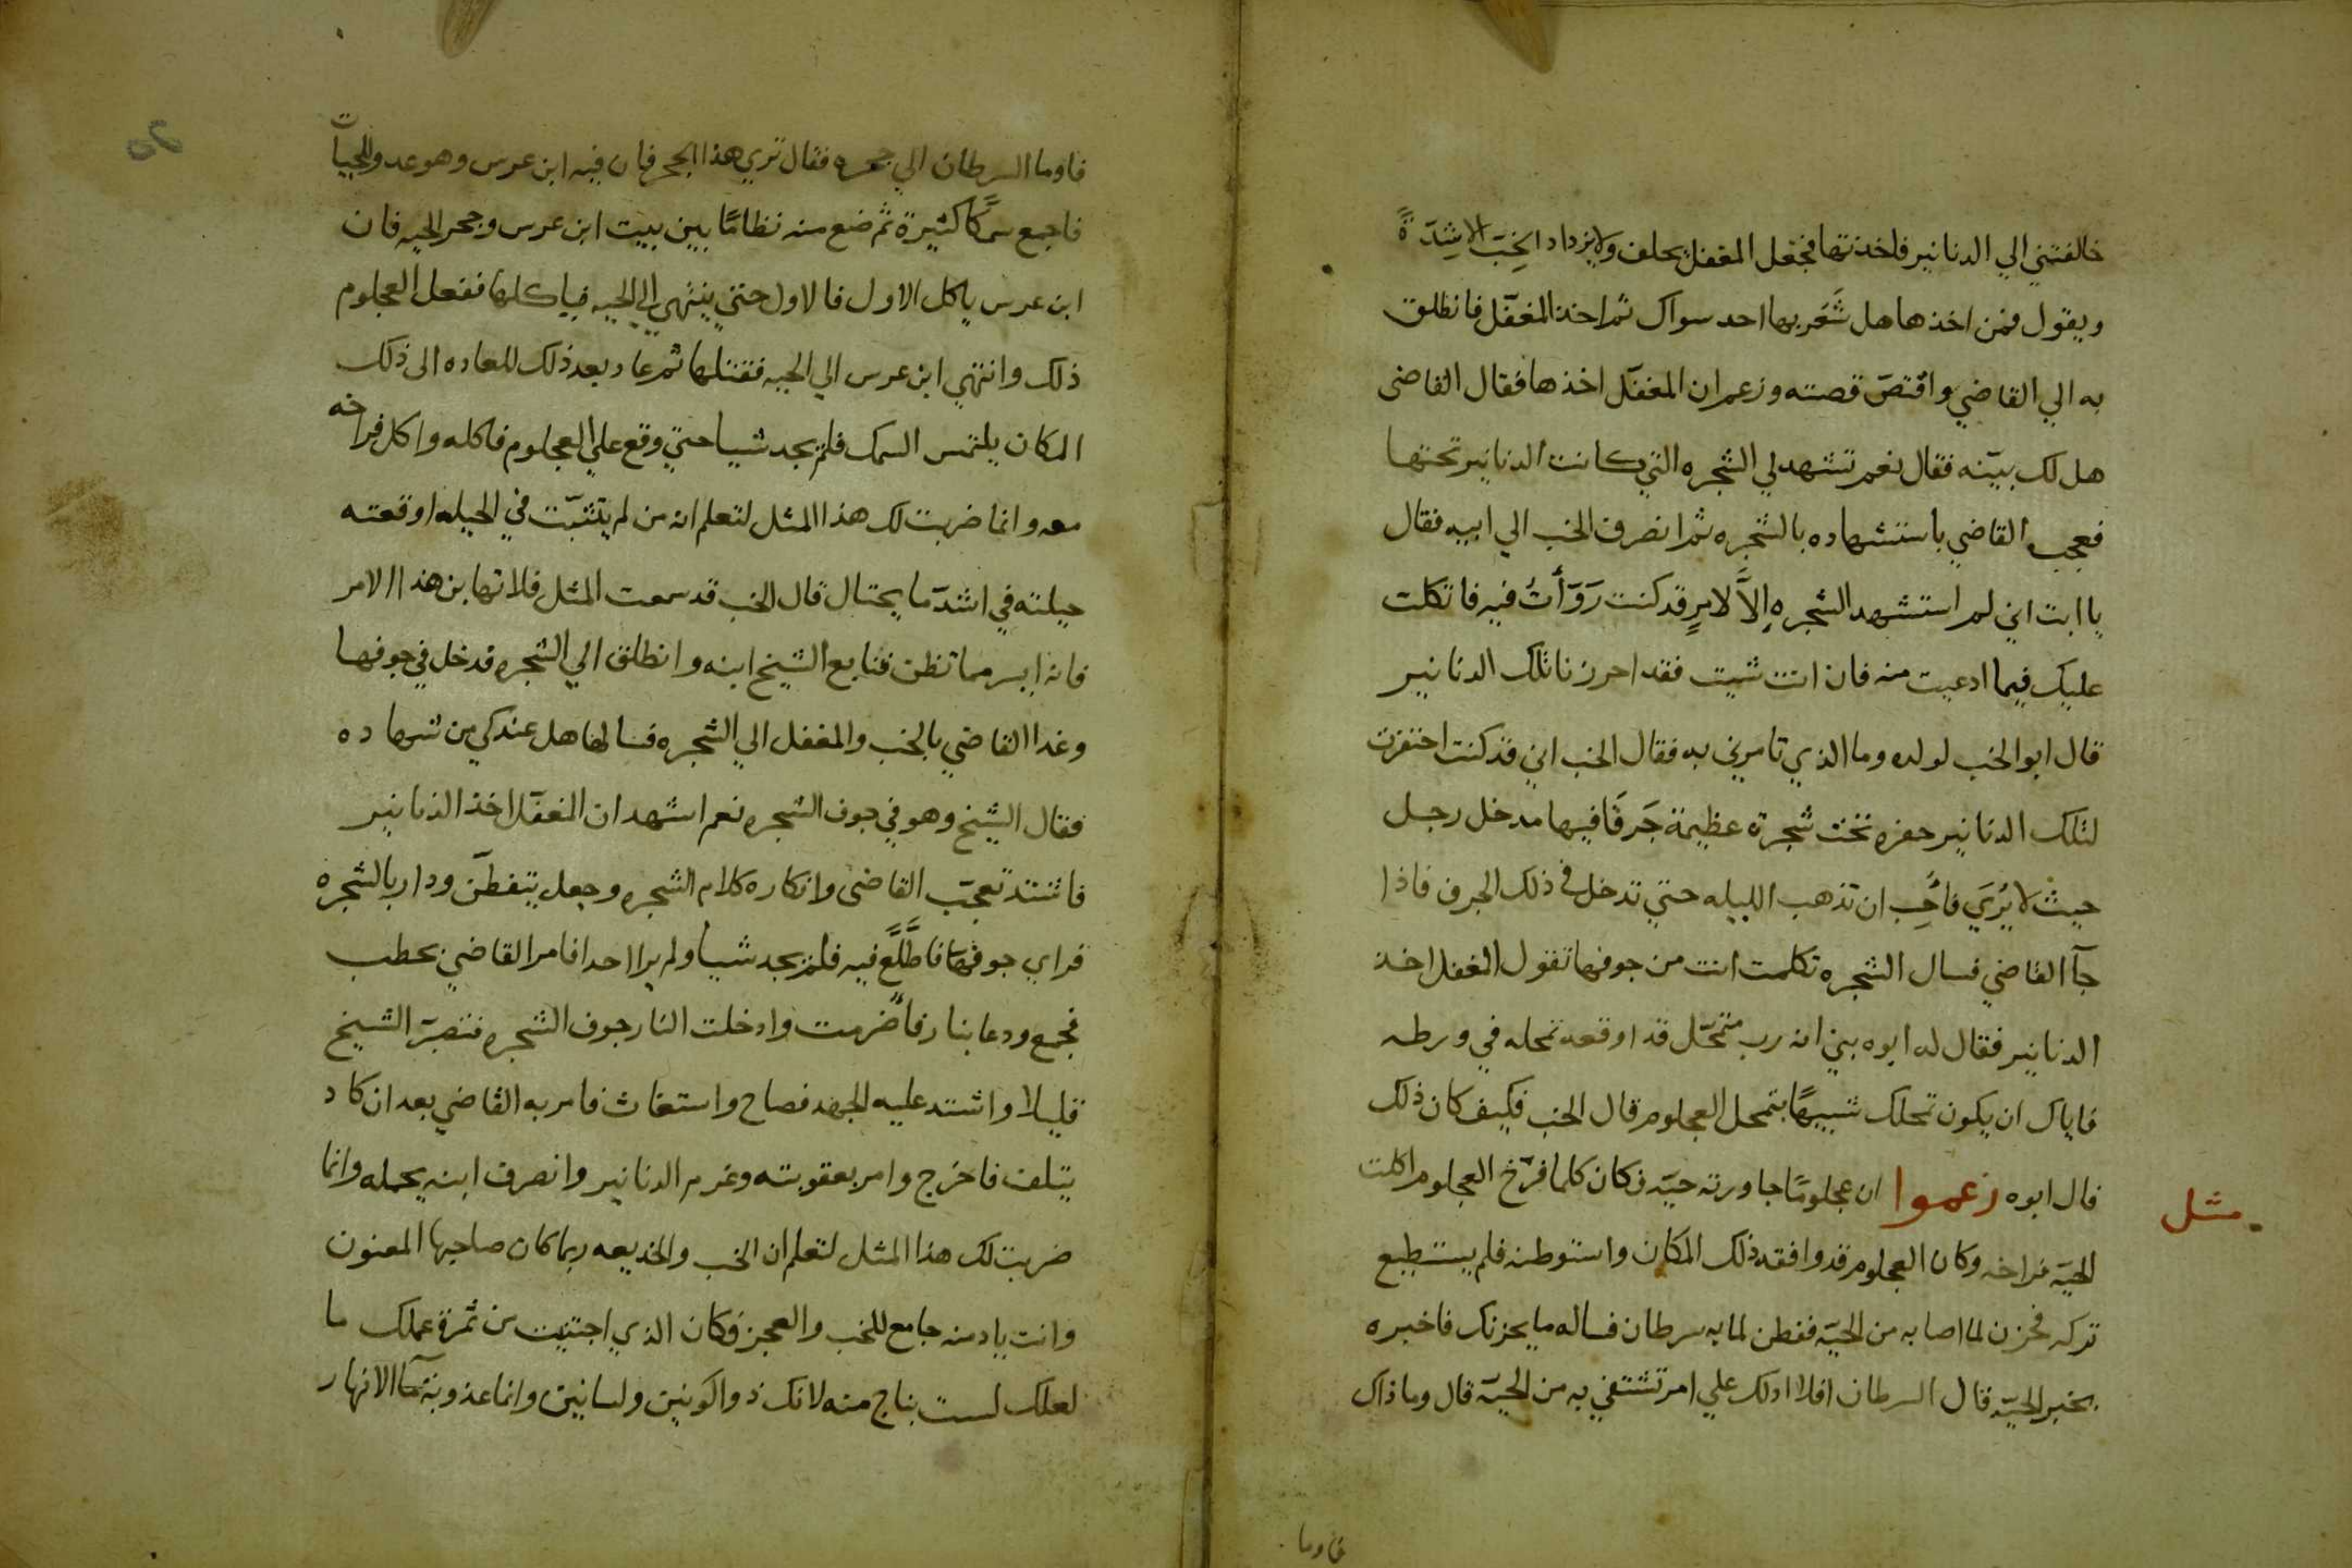 خالفتني الي الدنانير فاخذتها فجعل المغفل يحلف ولا يزداد الخِبّ الا شِدّةً
ويقول فمن اخذها هل شَعَر بها احد سواك ثم اخذ المغفّل فانطلق
به الي القاضي واقتصّ قصته وزعم ان المغفّل اخذها فقال القاضى
هل لك بيّنه فقال نعم تشهد لي الشجره التي كانت الدنانير تحتها
فعجب القاضي باستشهاده بالشجره ثم انصرف الخب الي ابيه فقال
يا ابت اني لم استشهد الشجرهِ اِلاَّ لامرٍ قد كنت رَوَّأتُ فيه فاتكلت
عليك فيما ادعيت منه فان انت شيت فقد احرزنا تلك الدنانير
قال ابو الخب لولده وما الذي تامرني به فقال الخب اني قد كنت احتفرت
لتلك الدنانير حفره تحت شجرة عظيمة جَرفًا فيها مدخل رجل
حيث لا يُرَي فاُحِب ان تذهب الليله حتي تدخل في ذلك الجرف فاذا
جآ القاضي فسال الشجره تكلمت انت من جوفها تقول المغفل اخذ
الدنانير فقال له ابوه بني انه رب متمحّل قد اوقعه تمحله في ورطه
فاياك ان يكون تمحلك شبيهًا بتمحل العجلوم قال الخب فكيف كان ذلك
مثل
قال ابوه زعموا ان عجلومًا جاورته حيّه فكان كلما فرّخ العجلوم اكلت
الحيّه فراخه وكان العجلوم قد وافقه ذلك المكان واستوطنه فلم يستطيع
تركه فحزن لما اصابه من الحيّه ففطن لما به سرطان فساله ما يحزنك فاخبره
بخبر الحيّه قال السرطان افلا ادلك علي امر تشتفي به من الحيّه قال وما ذاك
فاوما
فاوما السرطان الي جحره فقال تري هذا الجحر فان فيه ابن عرس وهو عدو للحيات
فاجمع سمكًا كثيرة ثم ضع منه نظامًا بين بيت ابن عرس وجحر الحيه فان
ابن عرس ياكل الاول فالاول حتي ينتهي الي الحيه فياكلها ففعل العجلوم
ذلك وانتهي ابن عرس الي الحيه فقتلها ثم عاد بعد ذلك للعاده الى ذلك
المكان يلتمس السمك فلم يجد شيا حتي وقع علي العجلوم فاكله واكل فراخه
معه وانما ضربت لك هذا المثل لتعلم انه من لم يتثبّت في الحيله اوقعته
حيلته في اشدّ ما يحتال قال الخب قد سمعت المثل فلا تهابن هذا الامر
فانه ايسر مما تظن فتابع الشيخ ابنه وانطلق الي الشجره فدخل في جوفها
وغدا القاضي بالخب والمغفل الي الشجره فسالها هل عندكي من شهاده
فقال الشيخ وهو في جوف الشجره نعم اشهد ان المغفّل اخذ الدنانير
فاشتد تعجّب القاضى وانكاره كلام الشجره وجعل يتفطّن ودار بالشجره
فراي جوفها فاطَّلَعَ فيه فلم يجد شيا ولم يرا احدا فامر القاضي بحطب
فجمع ودعا بنار فأُضرمت وادخلت النار جوف الشجره فتصبّر الشيخ
قليلا واشتد عليه الجهد فصاح واستغاث فامر به القاضي بعد ان كاد
يتلف فاخرج وامر بعقوبته وغرم الدنانير وانصرف ابنه يحمله وانما
ضربت لك هذا المثل لتعلم ان الخب والخديعه ربما كان صاحبها المغبون
وانت يا دمنه جامع للخب والعجز فكان الذي اجتنيت من ثمرة عملك ما
لعلك لست بناج منه لانك ذو الكونين ولسانين وانما عذوبة مآ الانهار